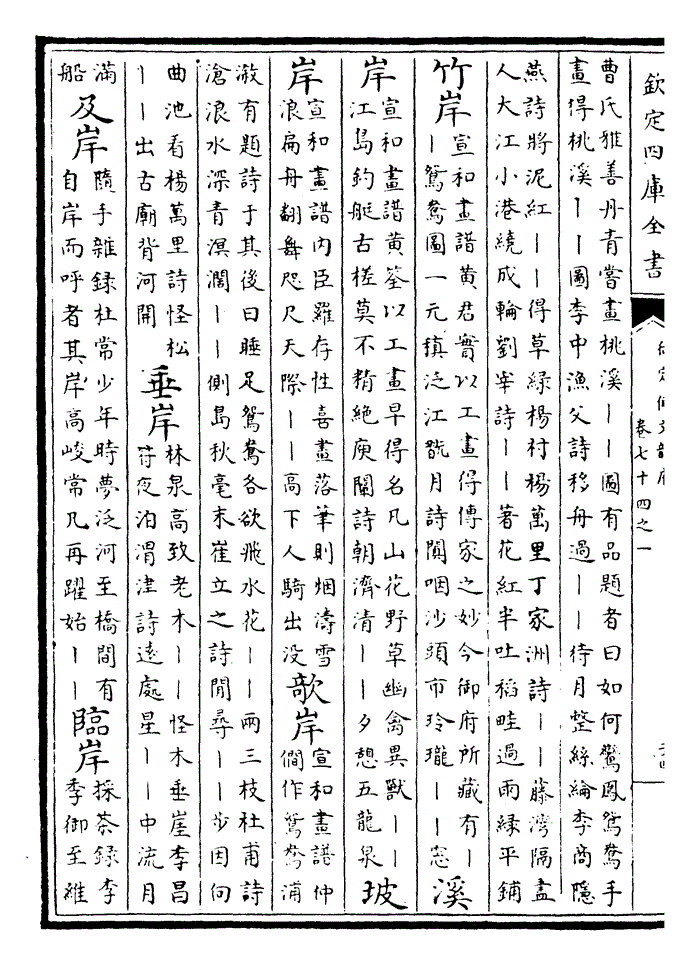 欽定四庫全書
御定佩文韻府
卷七十四之一
曹氏雅善丹青嘗畫桃溪｜｜圖有品題者曰如何鸞鳳鴛鴦手
畫得桃溪｜｜圖李中漁父詩移舟過｜｜待月整絲綸李商隱
燕詩將泥紅｜｜得草綠楊村楊萬里丁家洲詩｜｜藤灣隔盡
人大江小港繞成輪劉宰詩｜｜著花紅半吐稻畦過雨綠平鋪
竹岸
宣和畫譜黃君實以工畫得傳家之妙今御府所藏有｜
｜鴛鴦圖一元稹泛江翫月詩闐咽沙頭市玲瓏｜｜窻
溪
岸
宣和畫譜黃筌以工畫早得名凡山花野草幽禽異獸｜｜
江島釣艇古槎莫不精絕庾闡詩朝濟清｜｜夕憩五龍泉
坡
岸
宣和畫譜内臣羅存性喜畫落筆則烟濤雪
浪扁舟翻舞咫尺天際｜｜高下人騎出没
欹岸
宣和畫譜仲
僩作鴛鴦浦
漵有題詩于其後曰睡足鴛鴦各欲飛水花｜｜兩三枝杜甫詩
滄浪水深青溟濶｜｜側島秋毫末崔立之詩閒尋｜｜步因向
曲池看楊萬里詩怪松
｜｜出古廟背河開
垂岸
林泉高致老木｜｜怪木垂崖李昌
符夜泊渭津詩遠處星｜｜中流月
滿
船
及岸
隨手雜録杜常少年時夢泛河至橋間有
自岸而呼者其岸高峻常凡再躍始｜｜
臨岸
採茶録李
季御至維